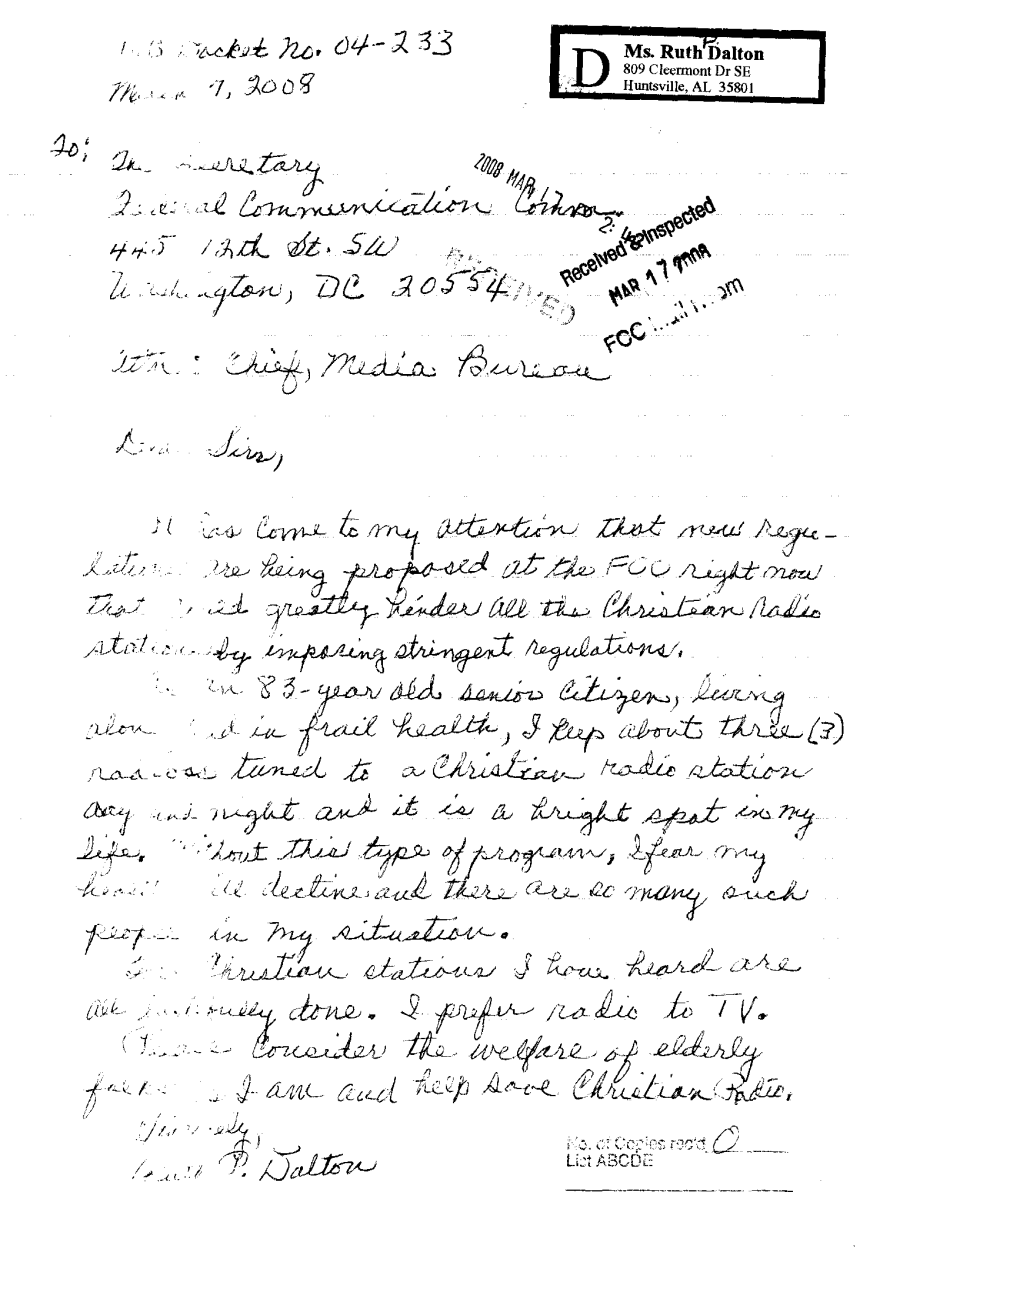 Docket No. 04-233
7, 2008
D
Ms. Ruth P Dalton
809 Cleermont Dr SE
Huntsville, AL 35801
To:
Secretary
Federal Communication Comm
445 12th St. SW
Washington, DC 20554
2008 MAR 17
RECEIVED
Received & Inspected
MAR 17 2008
FCC Mail Room
Attn: Chief, Media Bureau
Dear Sirs,
It has come to my attention that new regu-
lations are being proposed at the FCC right now
that would greatly hinder all the Christian Radio
stations by imposing stringent regulations.
an 83-year old senior citizen, living
alone and in frail health, I keep about three (3)
radios tuned to a Christian radio station
day and night and it is a bright spot in my
life. Without this type of program, I fear my
health will decline and there are so many such
people in my situation.
Christian stations I have heard are
all done. I prefer radio to TV.
Please consider the welfare of elderly
folks as I am and help save Christian Radio.
Sincerely,
Ruth P. Dalton
No. of Copies rec'd 0
List ABCDE